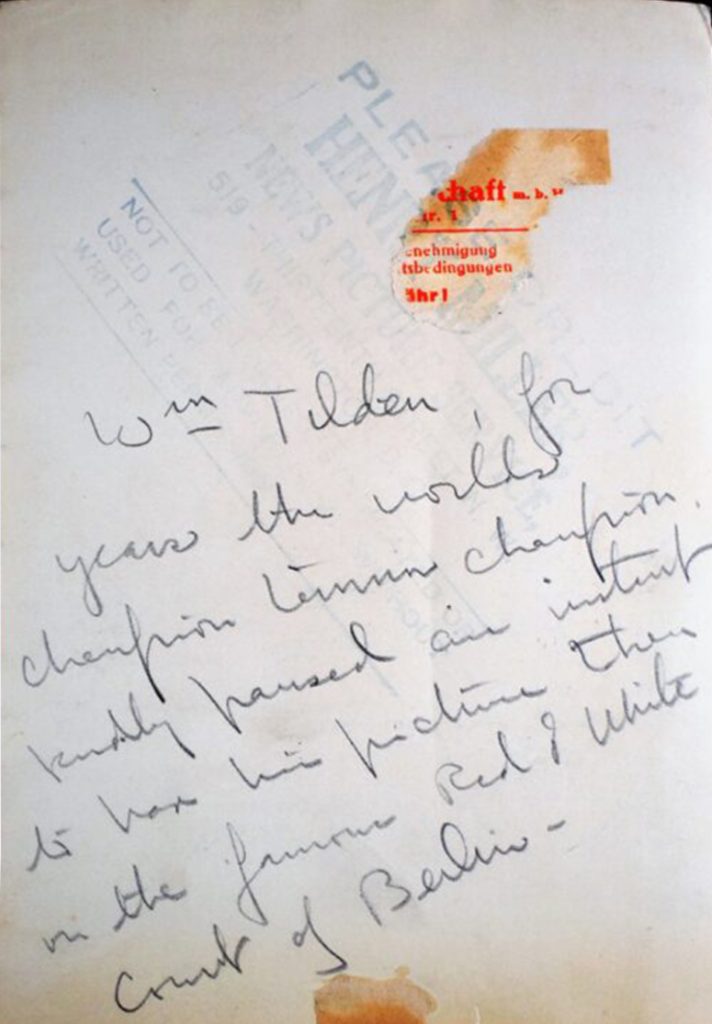 PLEASE CREDIT
HENRY MILLER
NEWS PICTURE SERVICE,
519 -
NOT TO BE
USED FOR
WRITTEN
chaft m. b. H
tr. 1
enehmigung
tsbedingungen
ähr!
Wm Tilden, for
years the worlds
champion tennis champion.
kindly paused an instant
to have his picture then
on the famous Red & White
Court of Berlin -